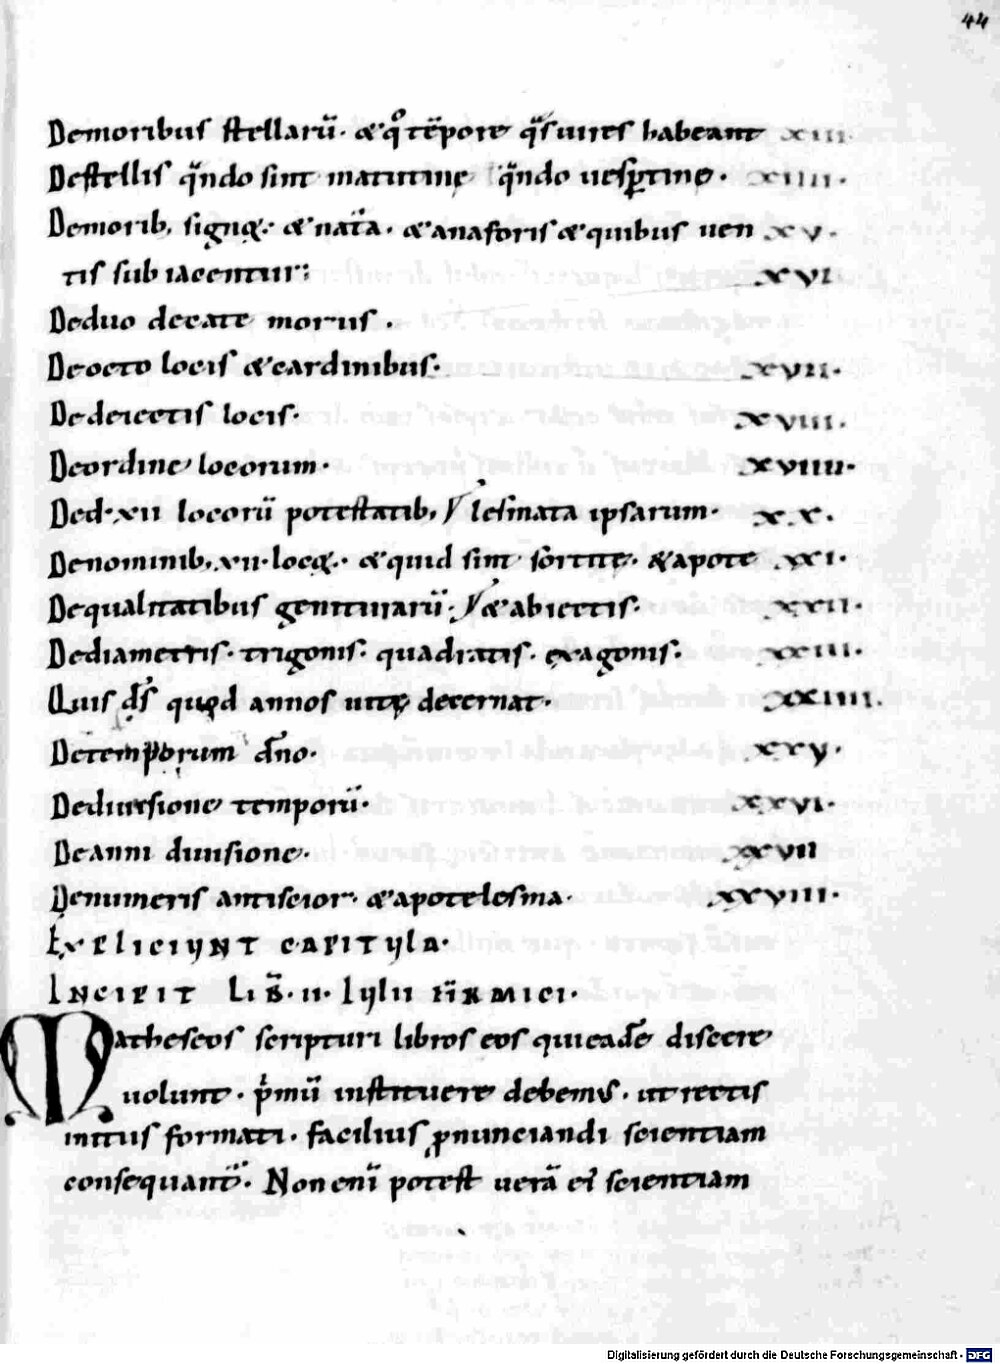 44
Demoribus stellarū. & qͦ tēpore q̄s uires habeant xiii.
Destellis q̄ndo sint matutinę q̄ndo uesꝑtine. xiiii.
Demorib; signoꝝ. & nat̄a. & anaforis & quibus uen xv.
tis sub iacentur; xvi
Deduo decate morus.
Deocto locis & cardinibus. xvii.
Dedeiectis locis. xviii.
Deordine locorum. xviiii.
Ded.xii locorū potestatib; lesmata ipsarum. xx.
Denominib; xii. locoꝝ. & quid sint sortite. & apote xxi.
Dequalitatibus geniturarū. & abiectis. xxii.
Dediametris. trigonis. quadratis. exagonis. xxiii.
Quis d̄s quod annos uitę decernat. xxiiii.
Detemporum dn̄o. xxv.
Dediuisione temporū. xxvi.
Deanni diuisione. xxvii
Denumeris antiscior. & apotelesma. xxviii.
Expliciunt capitula.
Incipit Lib̄. ii. Iulii fi̅rmici.
Matheseos scripturi libros eos qui eadē discere
uolunt. p̍mū instituere debemus. ut rectis
initus formati. facilius ꝓnunciandi scientiam
consequant̄. Non eni̅ potest uerā ei̅ scientiam
Digitalisierung gefördert durch die Deutsche Forschungsgemeinschaft - DFG